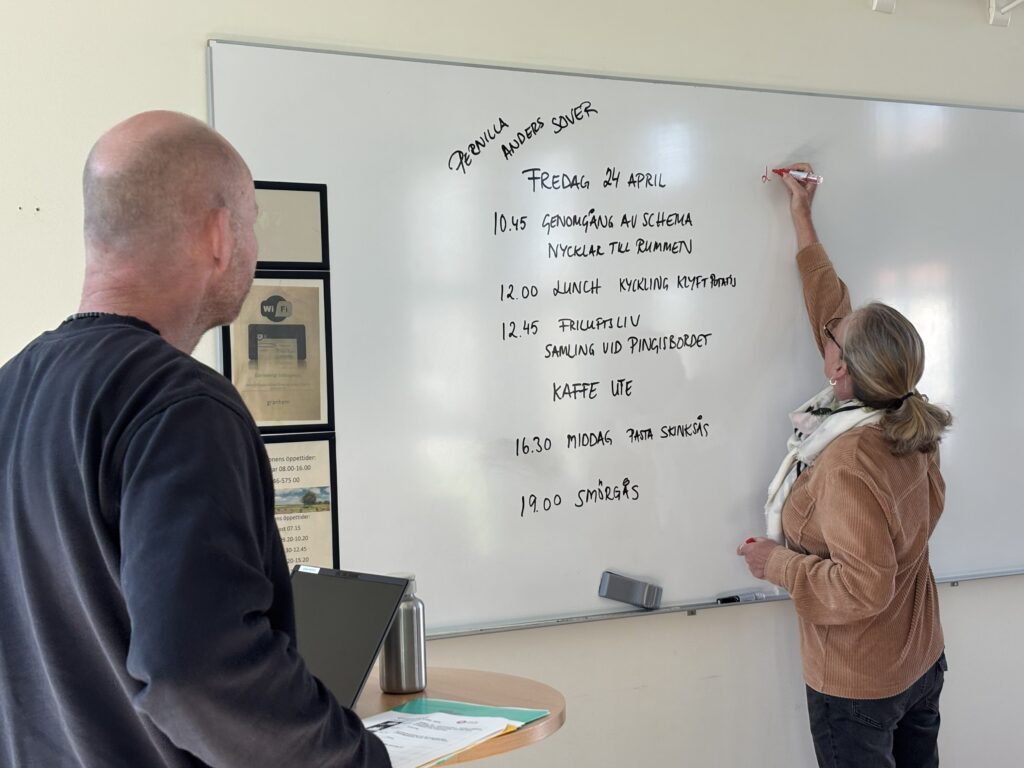 PERNILLA
ANDERS SOVER
FREDAG 24 APRIL
10.45 GENOMGÅNG AV SCHEMA
NYCKLAR TILL RUMMEN
12.00 LUNCH KYCKLING KLYFTPOTATIS
12.45 FRILUFTSLIV
SAMLING VID PINGISBORDET
KAFFE UTE
16.30 MIDDAG PASTA SKINKSÅS
19.00 SMÖRGÅS
WiFi
gränhem
onens öppettider:
08.00-16.00
46-575 00
ens öppettider:
07.15
9.20-10.20
-12.45
-15.20